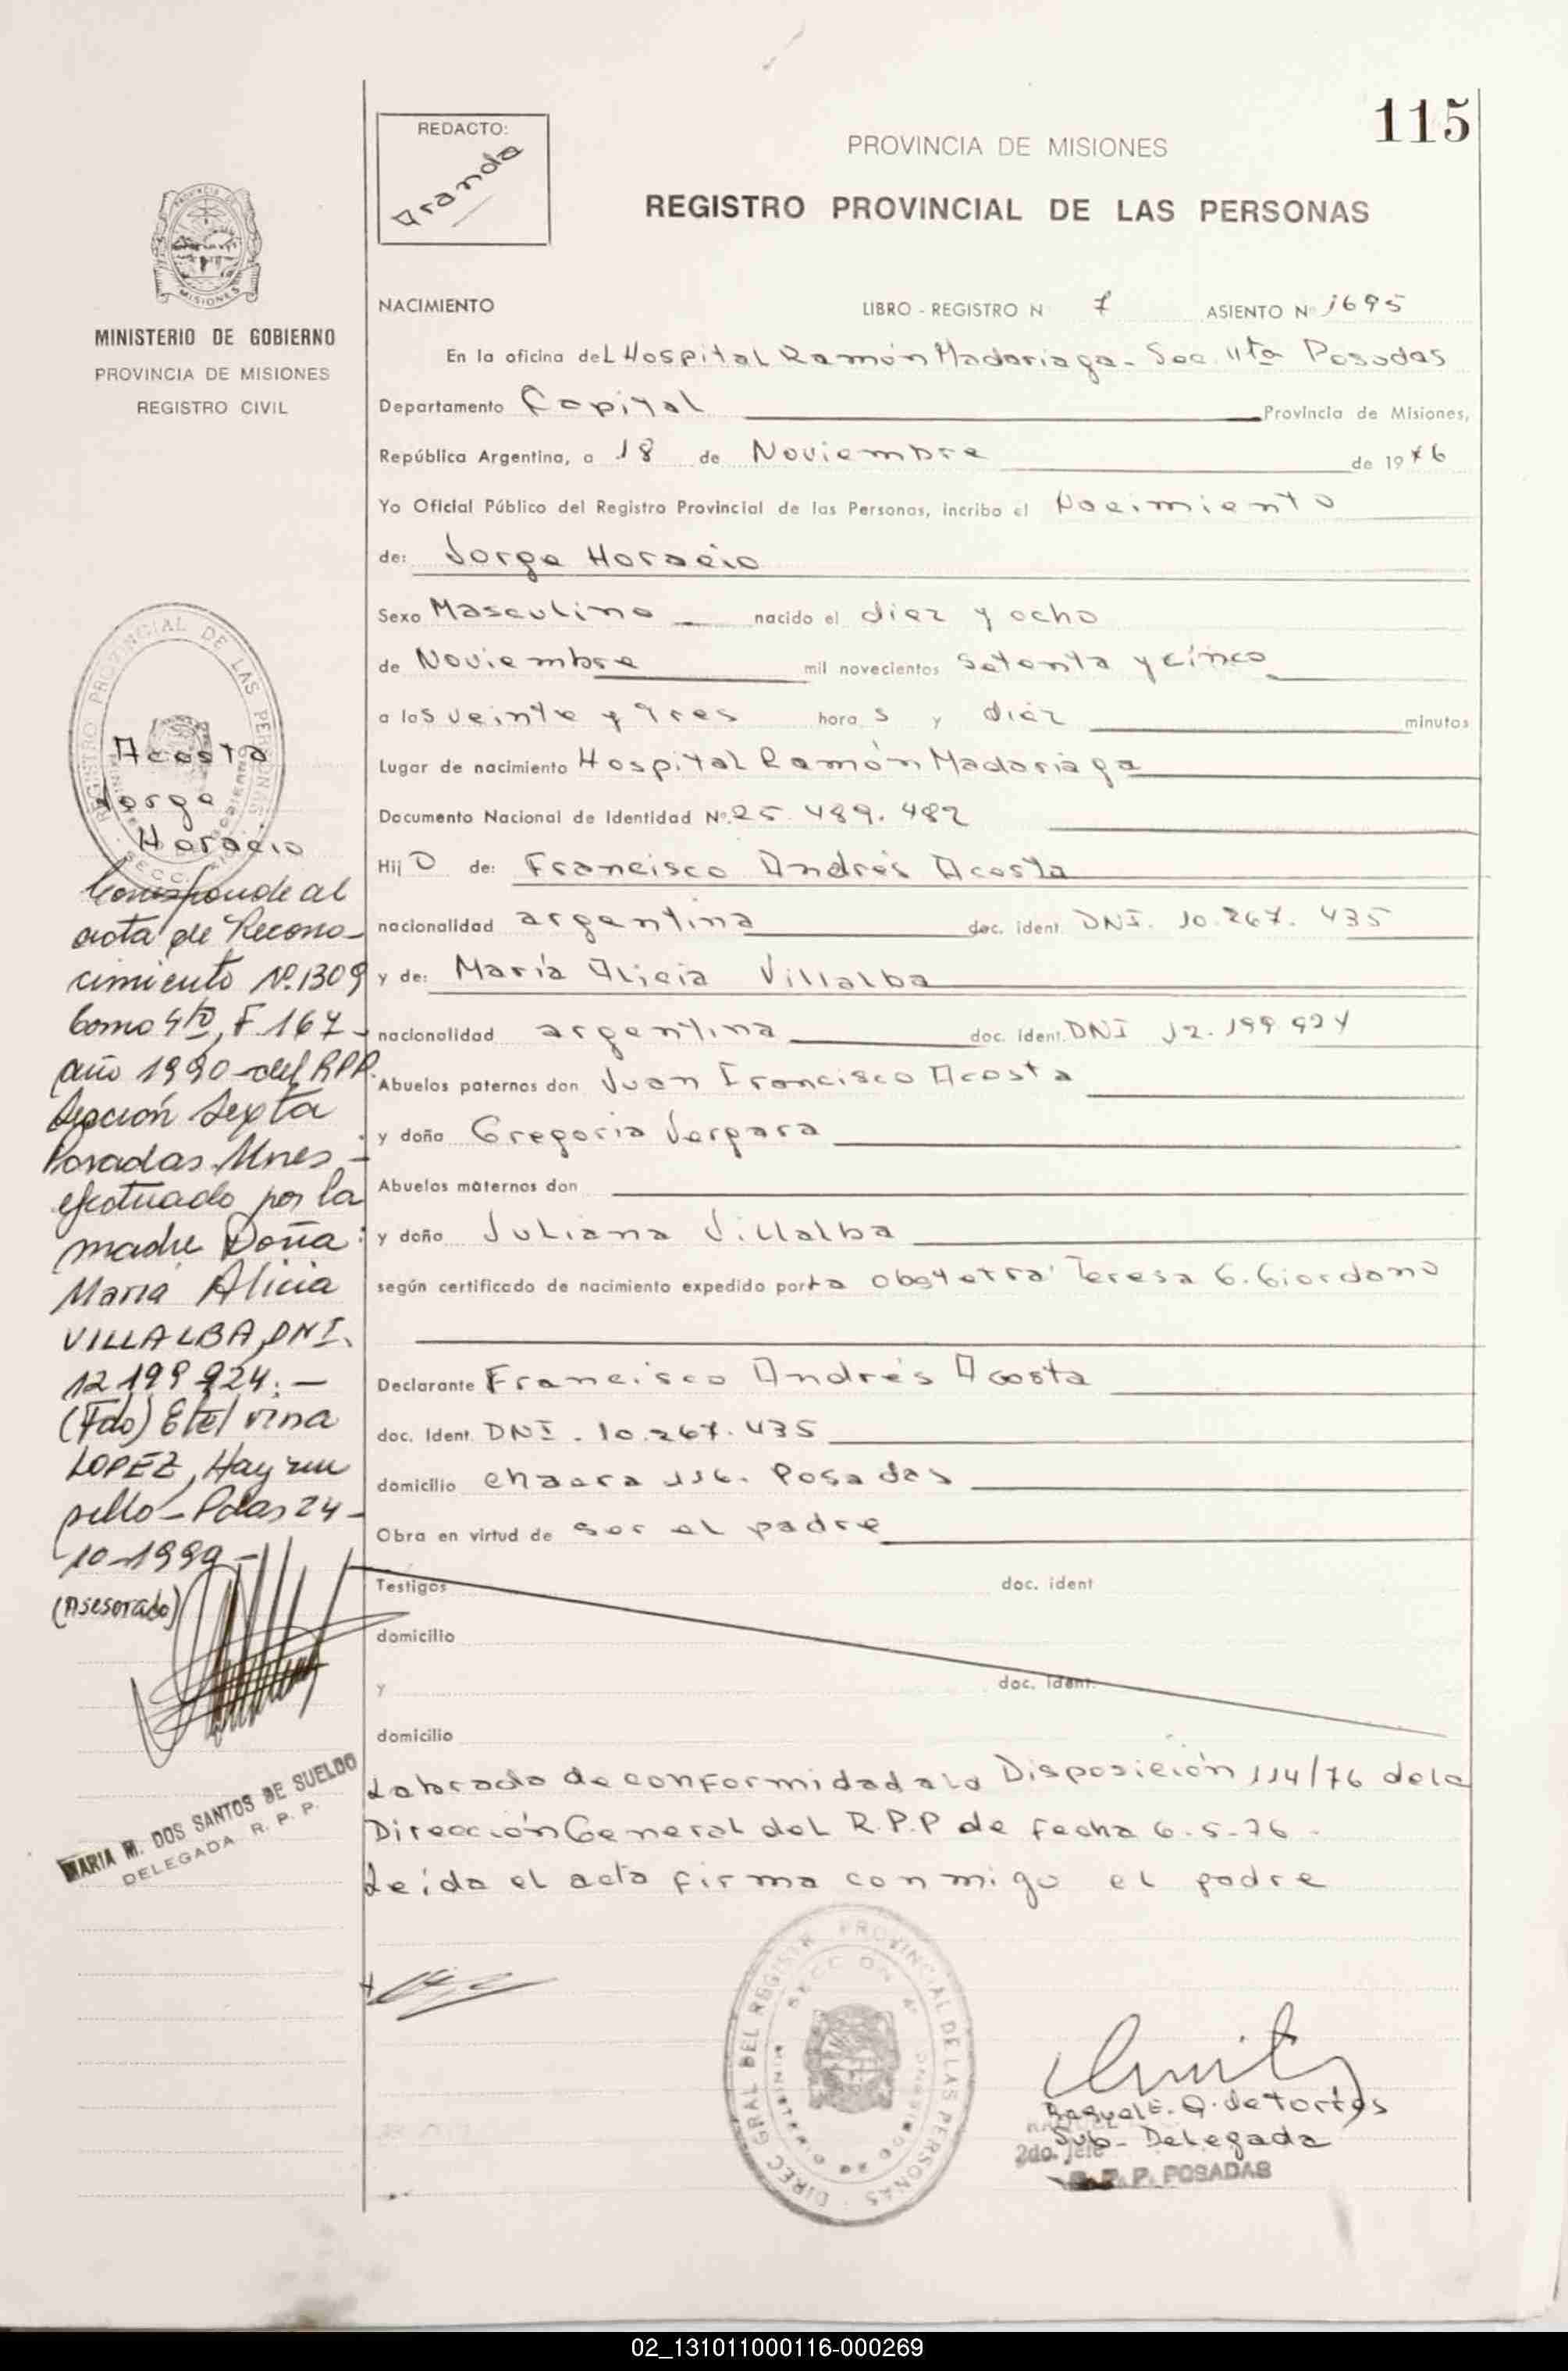 115
REDACTO:
Aranda
PROVINCIA DE MISIONES
REGISTRO PROVINCIAL DE LAS PERSONAS
MISIONES
MINISTERIO DE GOBIERNO
PROVINCIA DE MISIONES
REGISTRO CIVIL
NACIMIENTO LIBRO - REGISTRO N 7 ASIENTO Nº 1695
En la oficina del Hospital Ramón Madariaga - Sec. 4ta Posadas
Departamento Capital Provincia de Misiones,
República Argentina, a 18 de Noviembre de 1976
Yo Oficial Público del Registro Provincial de las Personas, incribo el Nacimiento
de: Jorge Horacio
Sexo Masculino nacido el diez y ocho
de Noviembre mil novecientos setenta y cinco
a las veinte y tres horas y diez minutos
Lugar de nacimiento Hospital Ramón Madariaga
Documento Nacional de Identidad Nº 25.489.482
Hijo de: Francisco Andrés Acosta
nacionalidad argentina doc. ident DNI. 10.267.435
y de: María Alicia Villalba
nacionalidad argentina doc. ident. DNI 12.199.924
Abuelos paternos don Juan Francisco Acosta
y doña Gregoria Vergara
Abuelos maternos don
y doña Juliana Villalba
según certificado de nacimiento expedido por la obstetra Teresa G. Giordano
Declarante Francisco Andrés Acosta
doc. Ident. DNI. 10.267.435
domicilio chacra 116. Posadas
Obra en virtud de ser el padre
Testigos doc. ident
domicilio
y doc. ident.
domicilio
Labrada de conformidad a la Disposición 114/76 de la
Dirección General del R.P.P de fecha 6-5-76.
Leída el acta firma conmigo el padre
Acosta
Jorge
Horacio
Corresponde al
acta de Recono-
cimiento Nº.1309
Tomo 4to, F. 167-
año 1990 del RPP.
Sección Sexta
Posadas Mnes -
efectuado por la
madre Doña:
María Alicia
VILLALBA, DNI.
12.199.924.-
(Fdo) Etelvina
LOPEZ, Hay un
sello - Pdas 24-
10-1990 -
(Asesorado)
MARIA M. DOS SANTOS DE SUELDO
DELEGADA R. P. P.
DIREC GRAL DEL REGISTR PROVINCIAL DE LAS PERSONAS
Raquel E. Q. de Tortes
Sub - Delegada
2do. Jefe
R. P. P. POSADAS
02_131011000116-000269